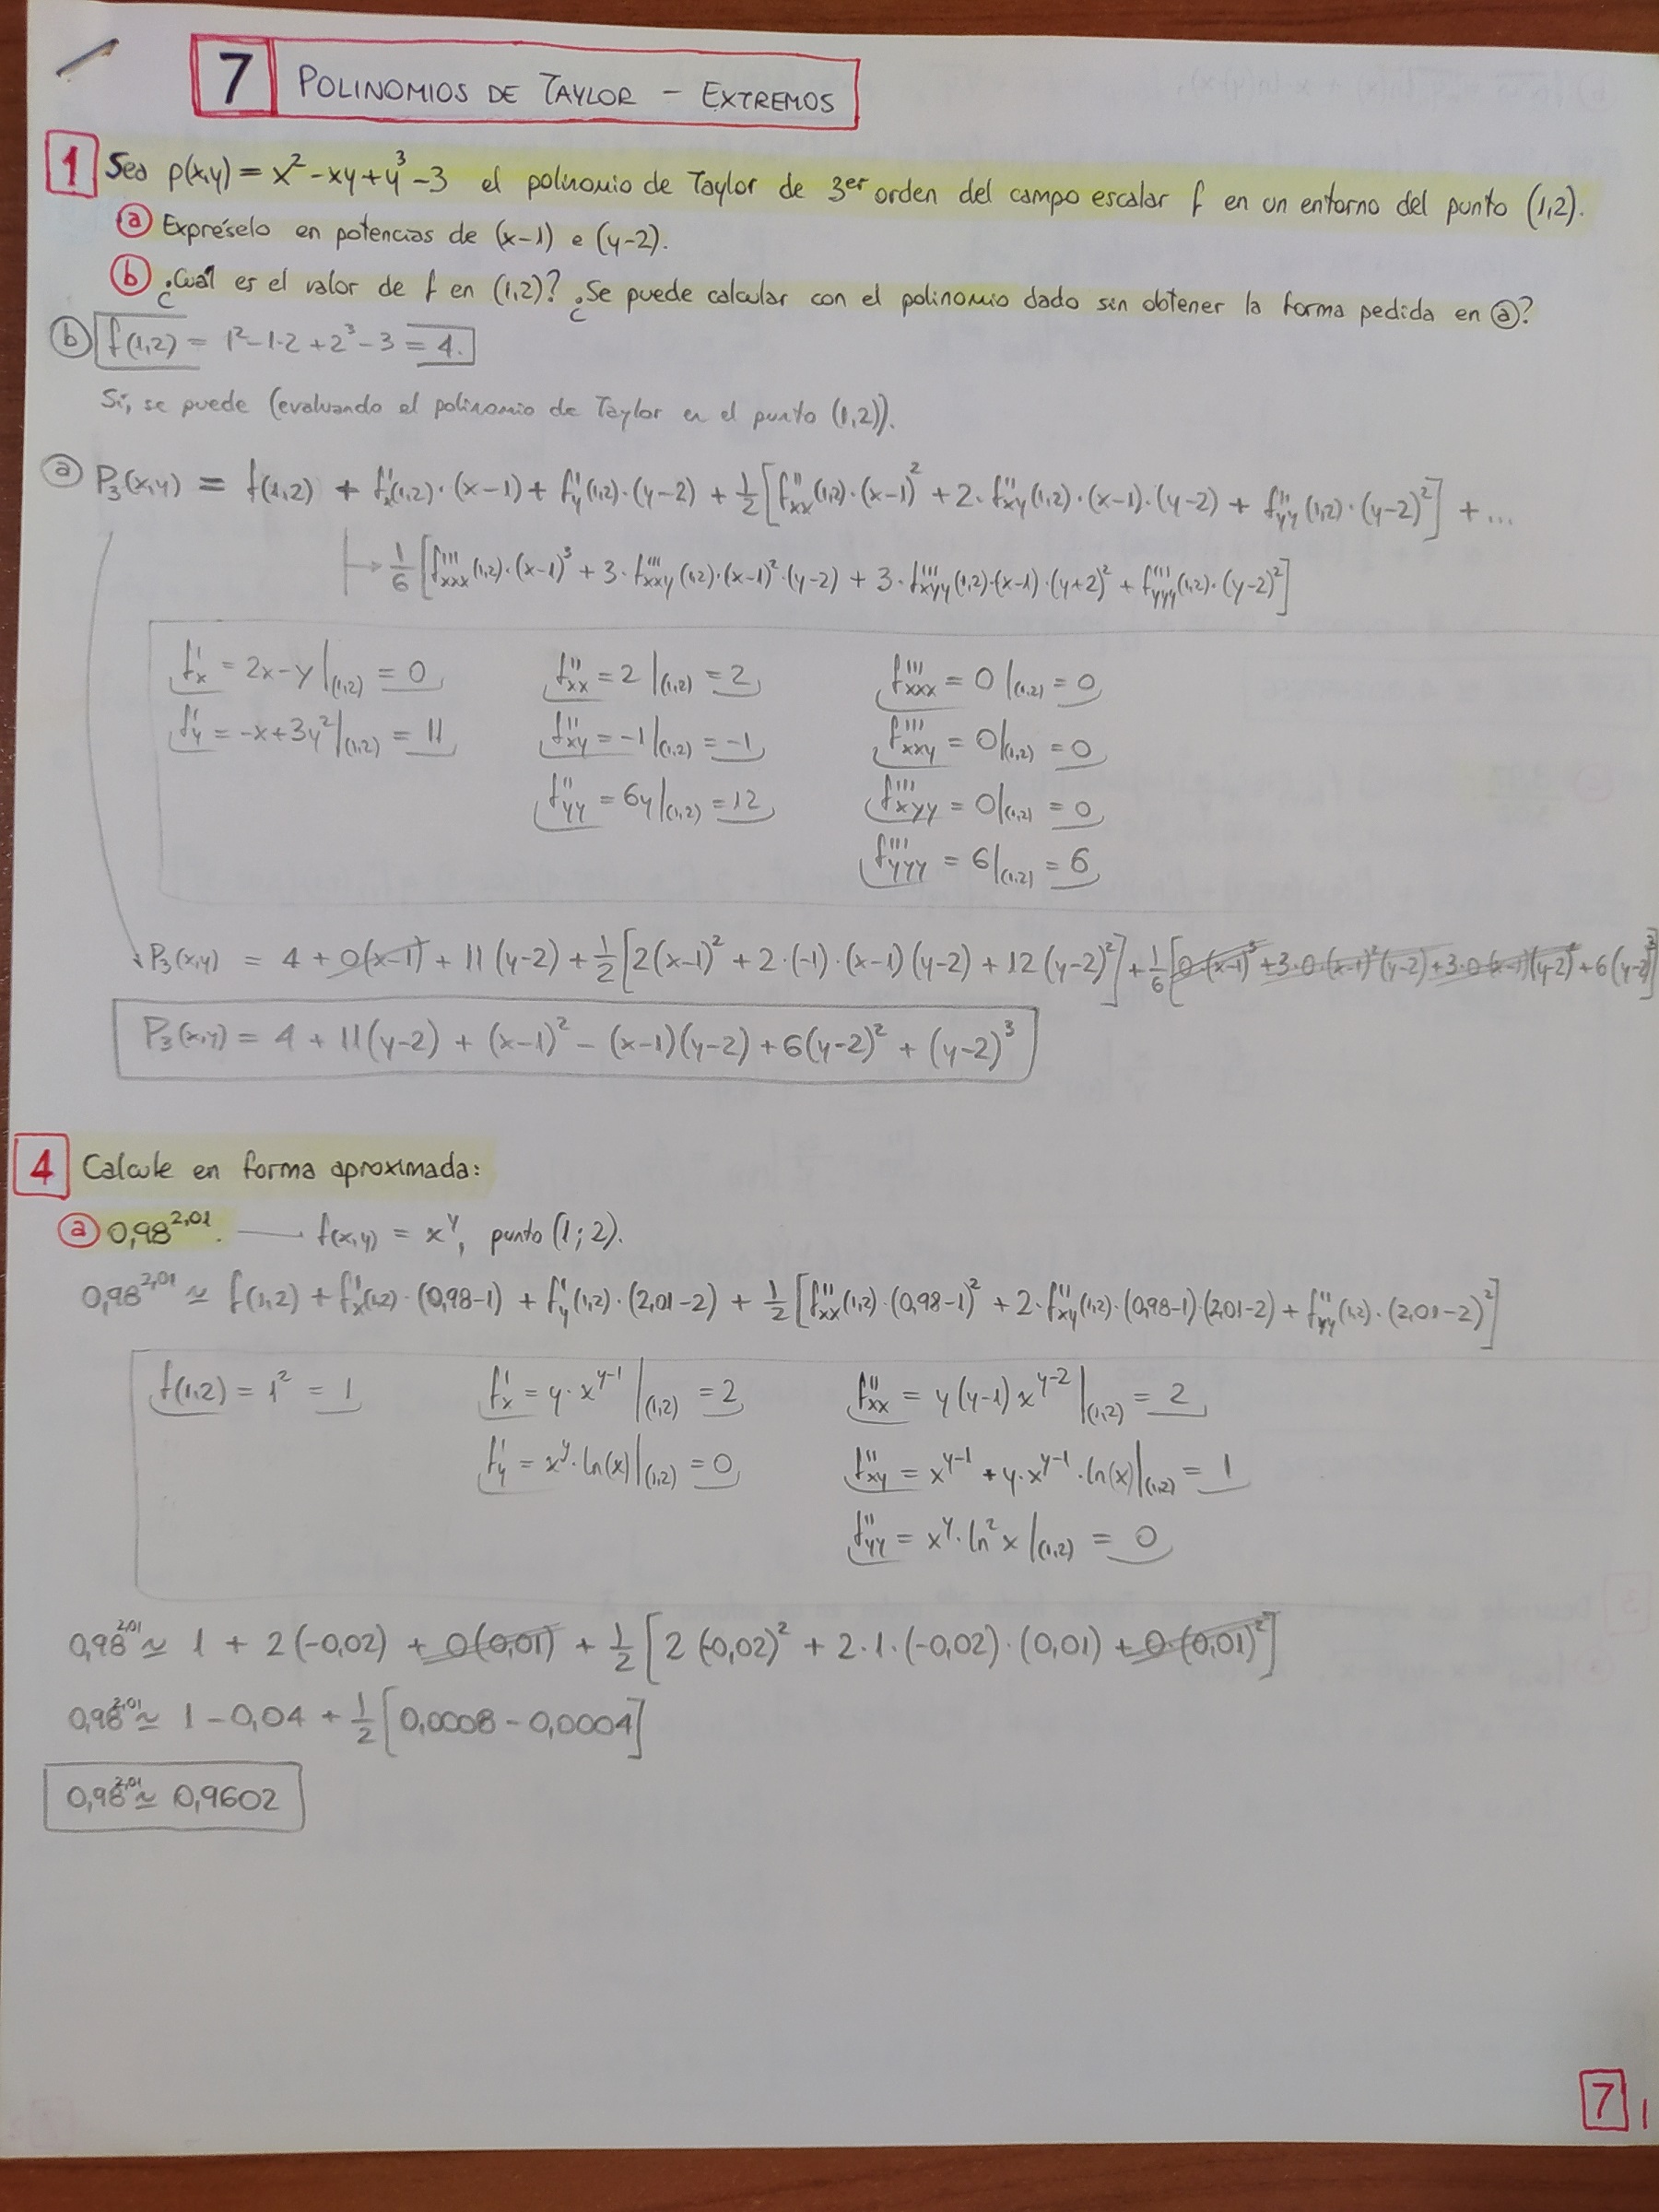 7 POLINOMIOS DE TAYLOR – EXTREMOS
1 Sea p(x,y) = x² - xy + y³ - 3 el polinomio de Taylor de 3er orden del campo escalar f en un entorno del punto (1,2).
a Expréselo en potencias de (x-1) e (y-2).
b ¿Cuál es el valor de f en (1,2)? ¿Se puede calcular con el polinomio dado sin obtener la forma pedida en a?
b f(1,2) = 1² - 1·2 + 2³ - 3 = 4.
Sí, se puede (evaluando el polinomio de Taylor en el punto (1,2)).
a P₃(x,y) = f(1,2) + f'x(1,2)·(x-1) + f'y(1,2)·(y-2) + 1/2 [f''xx(1,2)·(x-1)² + 2·f''xy(1,2)·(x-1)·(y-2) + f''yy(1,2)·(y-2)²] + ...
→ 1/6 [f'''xxx(1,2)·(x-1)³ + 3·f'''xxy(1,2)·(x-1)²·(y-2) + 3·f'''xyy(1,2)·(x-1)·(y+2)² + f'''yyy(1,2)·(y-2)²]
f'x = 2x-y|(1,2) = 0 f''xx = 2|(1,2) = 2 f'''xxx = 0|(1,2) = 0
f'y = -x+3y²|(1,2) = 11 f''xy = -1|(1,2) = -1 f'''xxy = 0|(1,2) = 0
f''yy = 6y|(1,2) = 12 f'''xyy = 0|(1,2) = 0
f'''yyy = 6|(1,2) = 6
P₃(x,y) = 4 + 0(x-1) + 11(y-2) + 1/2 [2(x-1)² + 2·(-1)·(x-1)(y-2) + 12(y-2)²] + 1/6 [0·(x-1)³ + 3·0·(x-1)²(y-2) + 3·0·(x-1)(y-2)² + 6(y-2)³]
P₃(x,y) = 4 + 11(y-2) + (x-1)² - (x-1)(y-2) + 6(y-2)² + (y-2)³
4 Calcule en forma aproximada:
a 0,98^2,01. — f(x,y) = x^y, punto (1;2).
0,98^2,01 ≃ f(1,2) + f'x(1,2)·(0,98-1) + f'y(1,2)·(2,01-2) + 1/2 [f''xx(1,2)·(0,98-1)² + 2·f''xy(1,2)·(0,98-1)·(2,01-2) + f''yy(1,2)·(2,01-2)²]
f(1,2) = 1² = 1 f'x = y·x^y-1|(1,2) = 2 f''xx = y(y-1)x^y-2|(1,2) = 2
f'y = x^y·ln(x)|(1,2) = 0 f''xy = x^y-1 + y·x^y-1·ln(x)|(1,2) = 1
f''yy = x^y·ln²x|(1,2) = 0
0,98^2,01 ≃ 1 + 2(-0,02) + 0(0,01) + 1/2 [2(-0,02)² + 2·1·(-0,02)·(0,01) + 0·(0,01)²]
0,98^2,01 ≃ 1 - 0,04 + 1/2 [0,0008 - 0,0004]
0,98^2,01 ≃ 0,9602
7 1